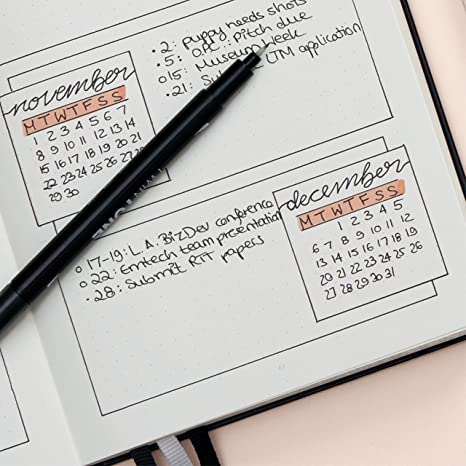 november
M T W T F S S
1 2 3 4 5 6 7
8 9 10 11 12 13 14
15 16 17 18 19 20 21
22 23 24 25 26
29 30
• 2: puppy needs shots
• 5: pitch due
o 15: Museum week
• 21: LTM application
december
M T W T F S S
1 2 3 4 5
6 7 8 9 10 11 12
13 14 15 16 17 18 19
20 21 22 23 24 25 26
27 28 29 30 31
o 17-19: L.A. BizDev conference
o 22: Emtech team presentation
• 28: Submit papers